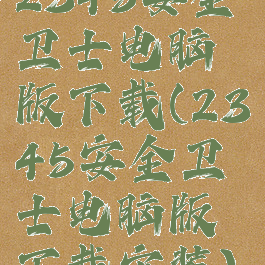 2345安全
卫士电脑
版下载(23
45安全卫
士电脑版
下载安装)